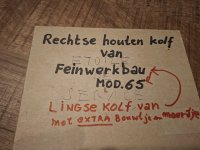 Rechtse houten kolf
van
Feinwerkbau
MOD.65
LINGSE KOLF van
met EXTRA Bouwtje en moertje